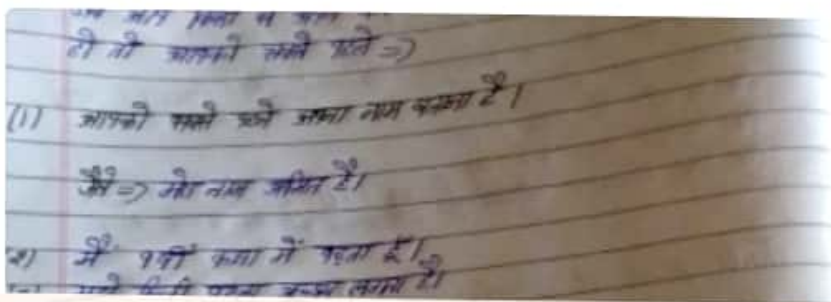 हो तो आपको सबसे पहले =>
(1) आपको सबसे पहले अपना नाम बताना है।
जैसे => मेरा नाम अमित है।
(2) मैं 9वीं कक्षा में पढ़ता हूँ।
पढ़ना अच्छा लगता है।